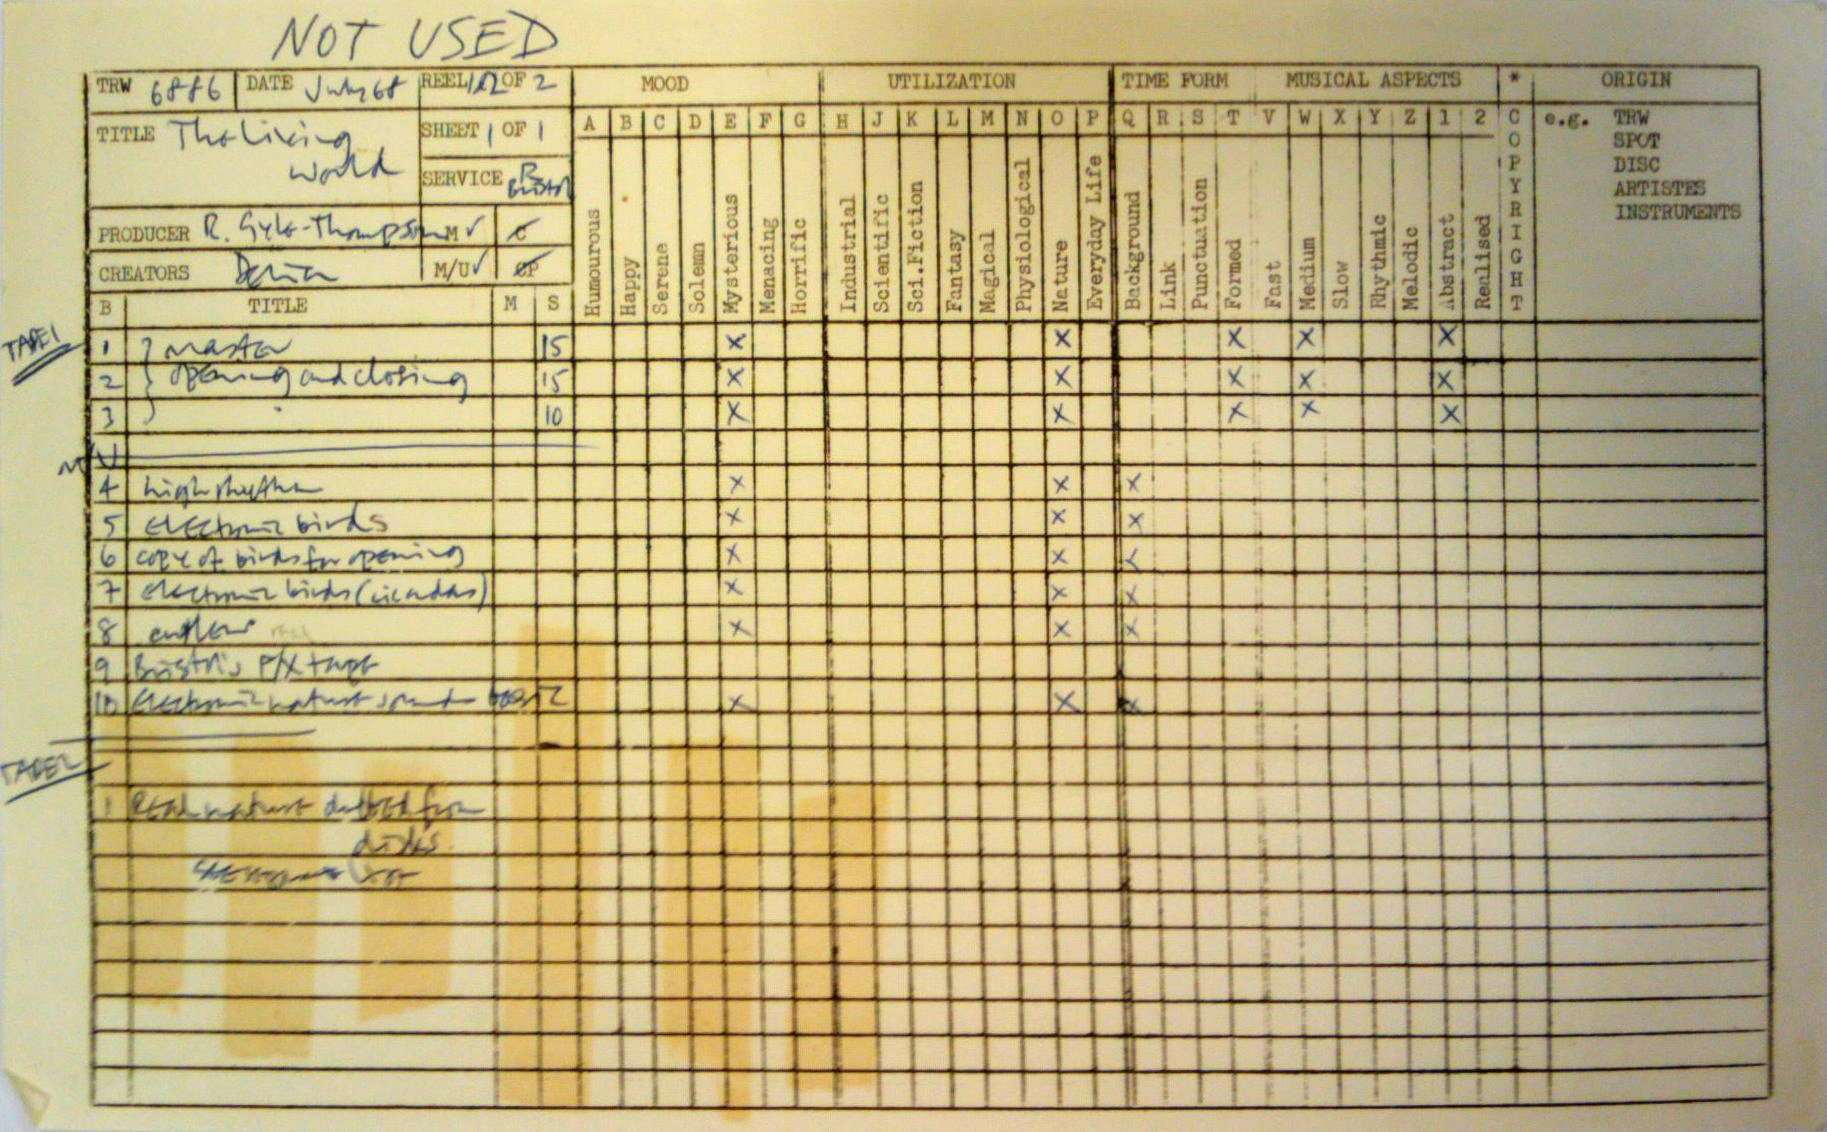 NOT USED
TRW 6886 DATE July 68 REEL 1/2 OF 2 MOOD UTILIZATION TIME FORM MUSICAL ASPECTS * ORIGIN
TITLE The Living SHEET 1 OF 1 A B C D E F G H J K L M N O P Q R S T V W X Y Z 1 2 COPYRIGHT e.g. TRW
World SPOT
SERVICE R DISC
Bristol ARTISTES
PRODUCER R. Gyle-Thompson M ✓ C INSTRUMENTS
CREATORS Delia M/U ✓ CP
Humourous Happy Serene Solemn Mysterious Menacing Horrific Industrial Scientific Sci.Fiction Fantasy Magical Physiological Nature Everyday Life Background Link Punctuation Formed Fast Medium Slow Rhythmic Melodic Abstract Realised
B TITLE M S
TAPE 1
1 master 15 X X X X X
2 opening and closing 15 X X X X X
3 10 X X X X X
M/U
4 high rhythm X X X
5 electronic birds X X X
6 copy of birds for opening X X X
7 electronic birds (cicadas) X X X
8 X X X
9 Bristol's F/X tape
10 Electronic nature sounds X X X
TAPE 2
1 Real nature dubbed from
disks